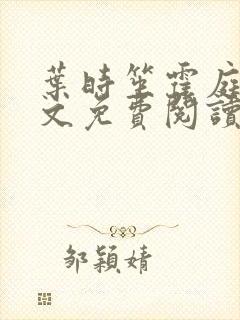 葉時笙霆庭
文免費閱讀
鄒穎婧